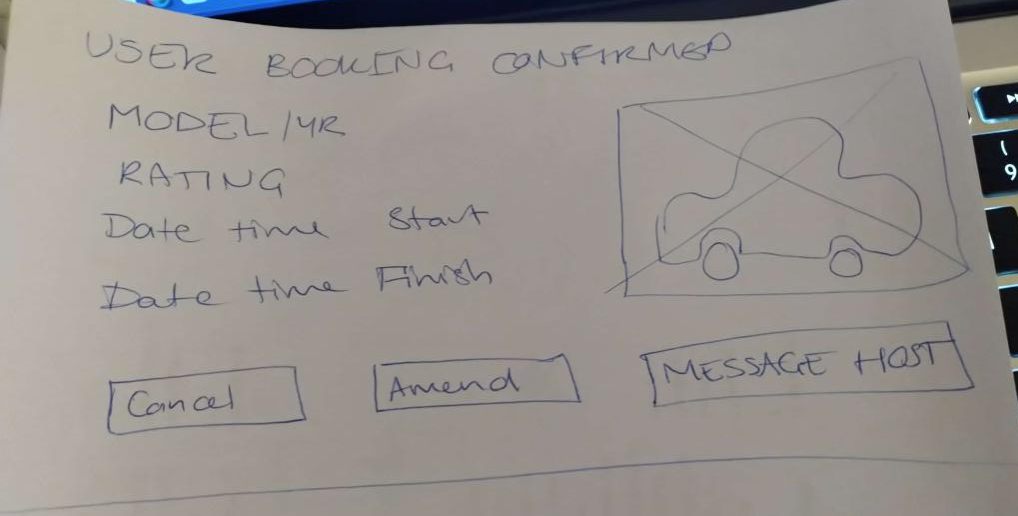 USER BOOKING CONFIRMED
MODEL/YR
RATING
Date time Start
Date time Finish
Cancel
Amend
MESSAGE HOST
9